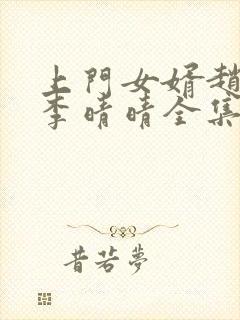 上門女婿趙
李晴晴全集
昔若夢